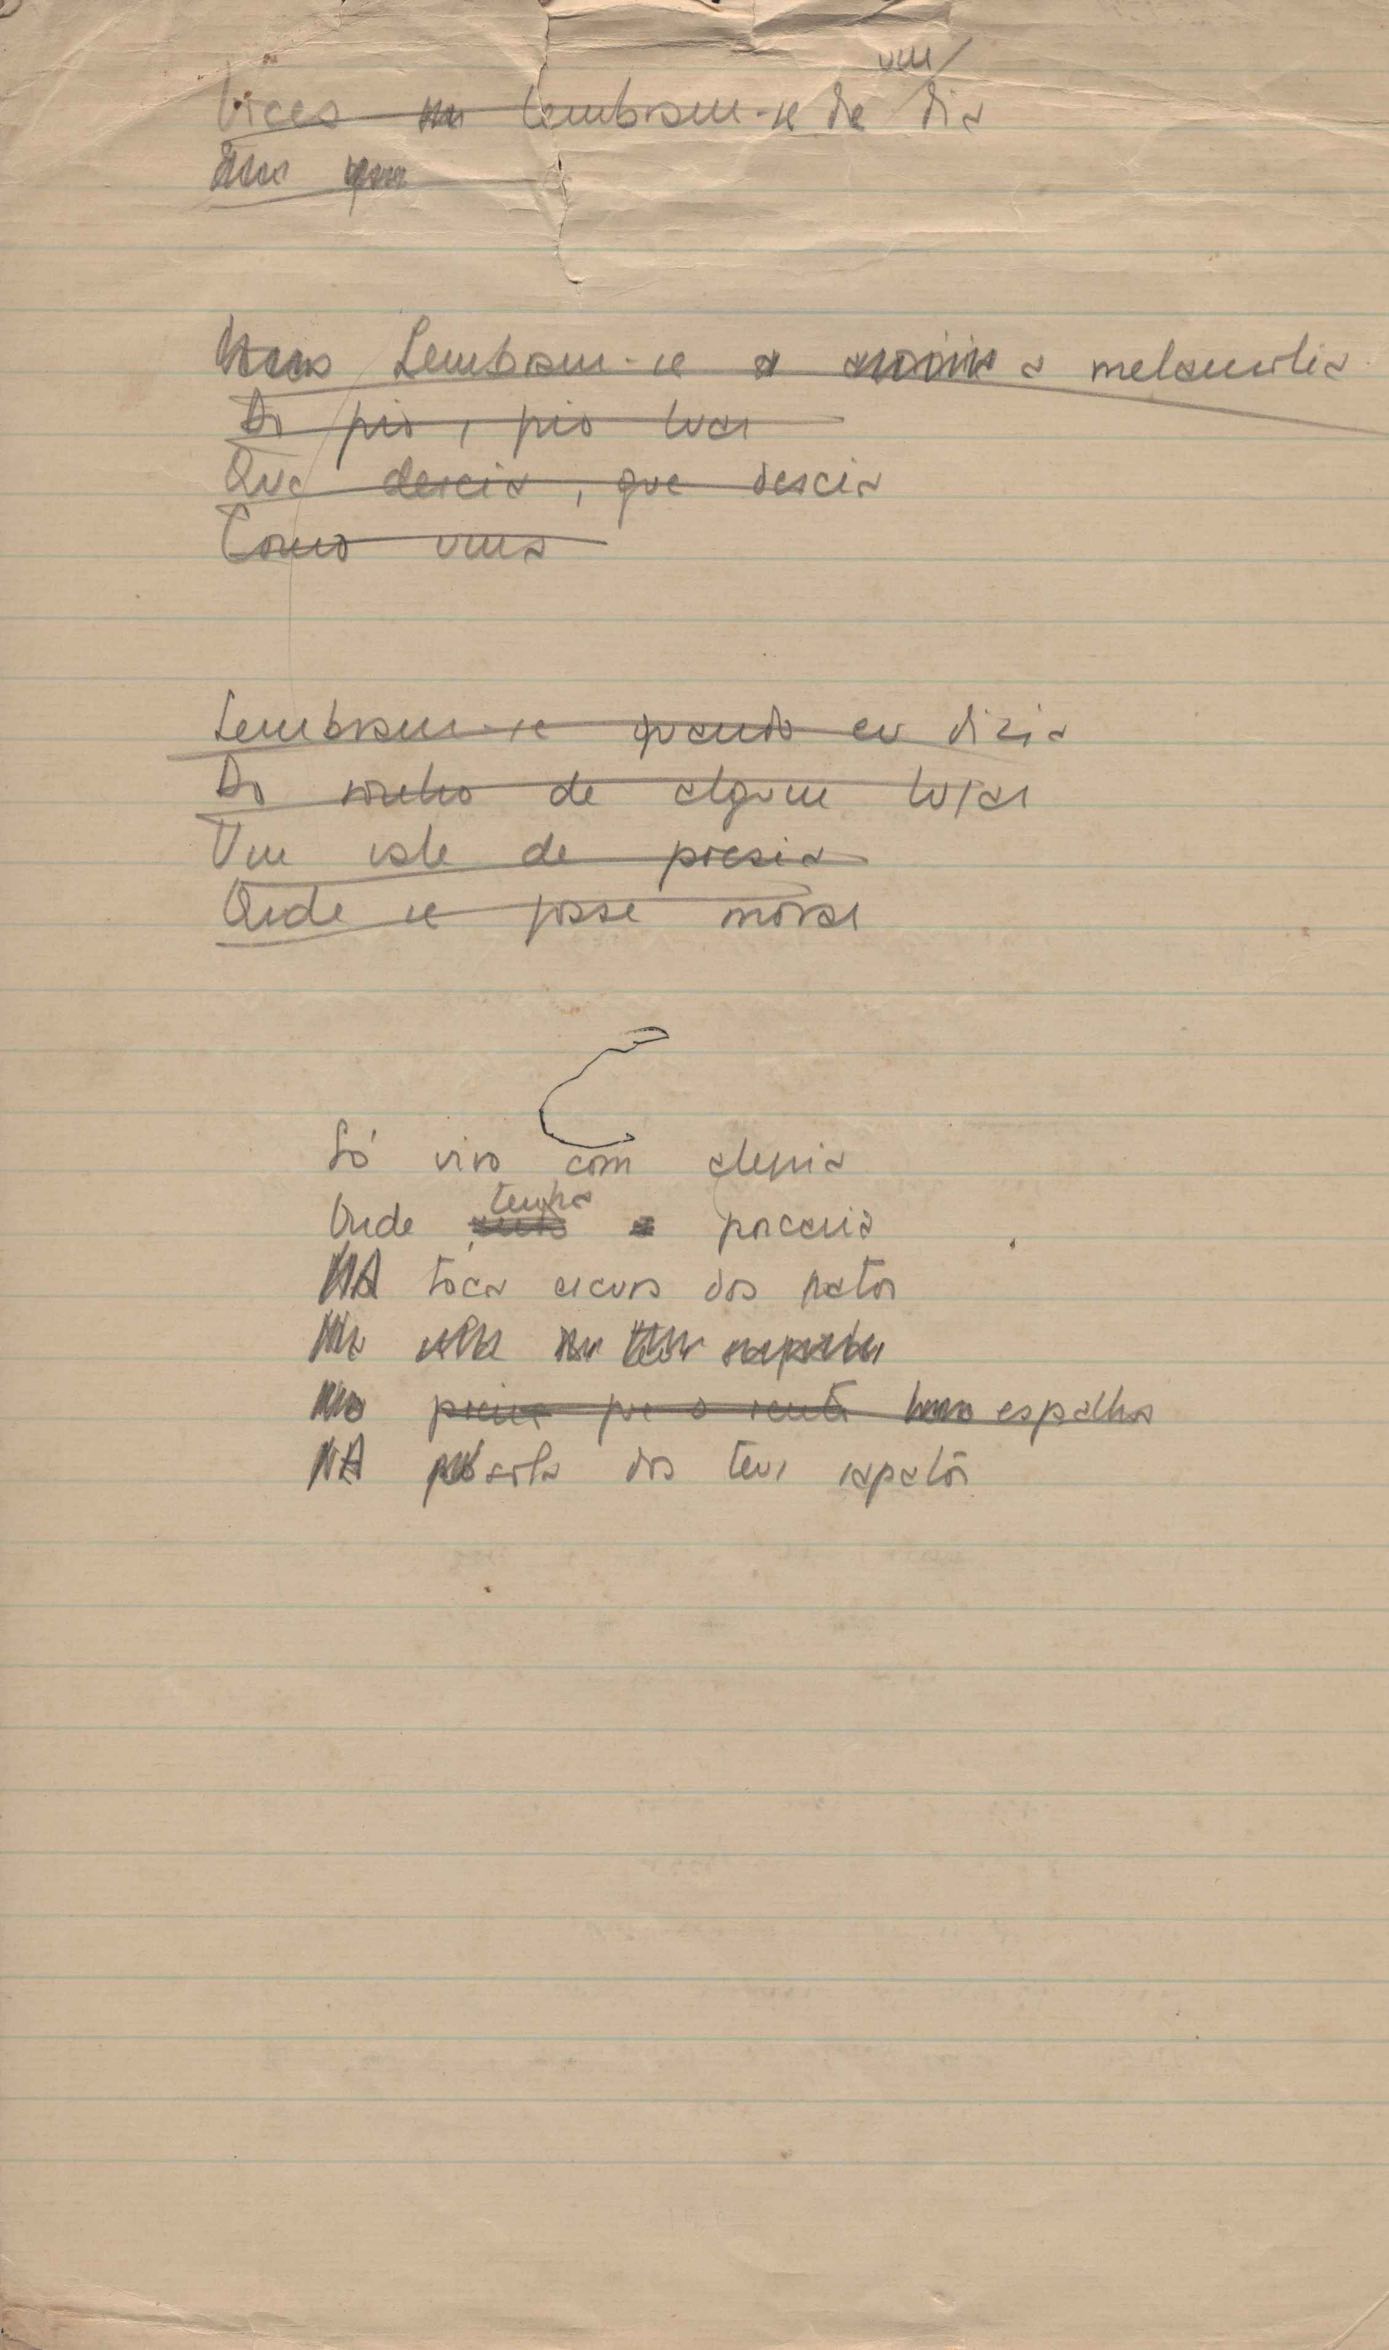 um
Vocês lembram-se de dia
Lembram-se a melancolia
Do frio, frio luar
Que descia, que descia
Como uma
Lembram-se quando eu dizia
Do sonho de algum lugar
Um vale de poesia
Onde se posse morar
Só vivo com alegria
tenha
Onde porcaria
NA toca escura dos ratos
espalha
NA sola dos teus sapatos